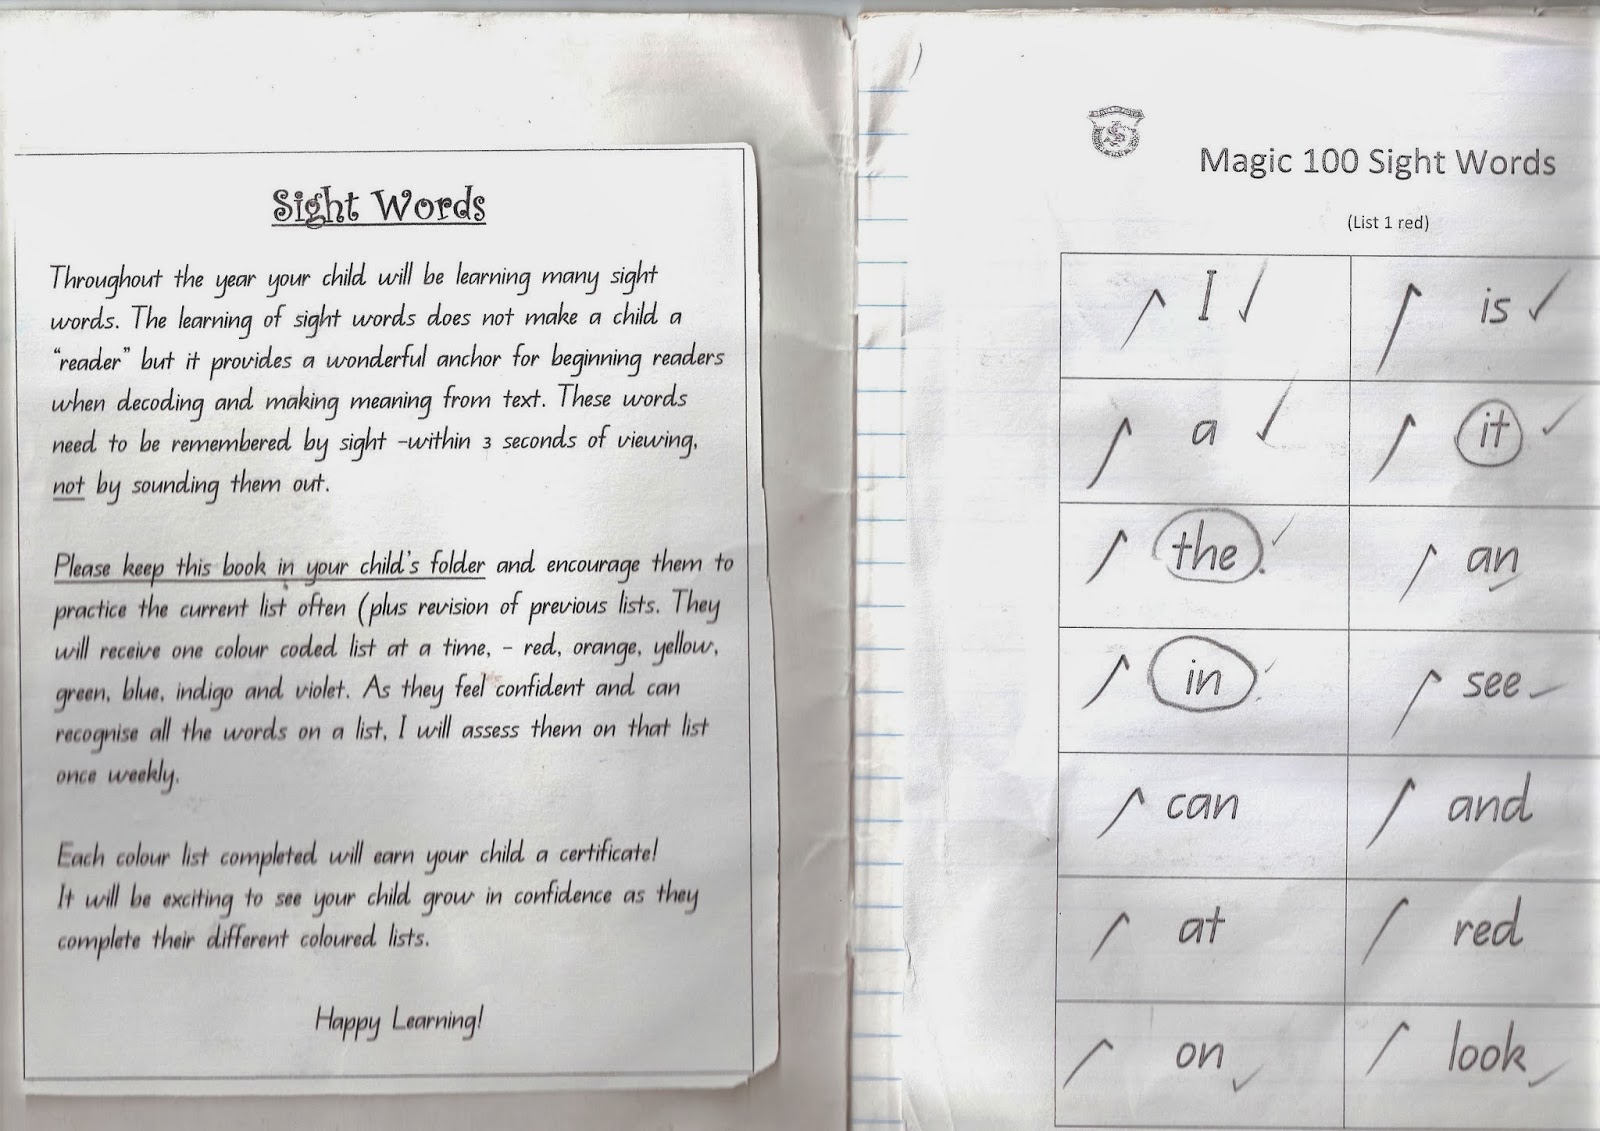 Sight Words
Throughout the year your child will be learning many sight
words. The learning of sight words does not make a child a
“reader” but it provides a wonderful anchor for beginning readers
when decoding and making meaning from text. These words
need to be remembered by sight -within 3 seconds of viewing,
not by sounding them out.
Please keep this book in your child's folder and encourage them to
practice the current list often (plus revision of previous lists. They
will receive one colour coded list at a time, - red, orange, yellow,
green, blue, indigo and violet. As they feel confident and can
recognise all the words on a list, I will assess them on that list
once weekly.
Each colour list completed will earn your child a certificate!
It will be exciting to see your child grow in confidence as they
complete their different coloured lists.
Happy Learning!
Magic 100 Sight Words
(List 1 red)
I is
a it
the an
in see
can and
at red
on look